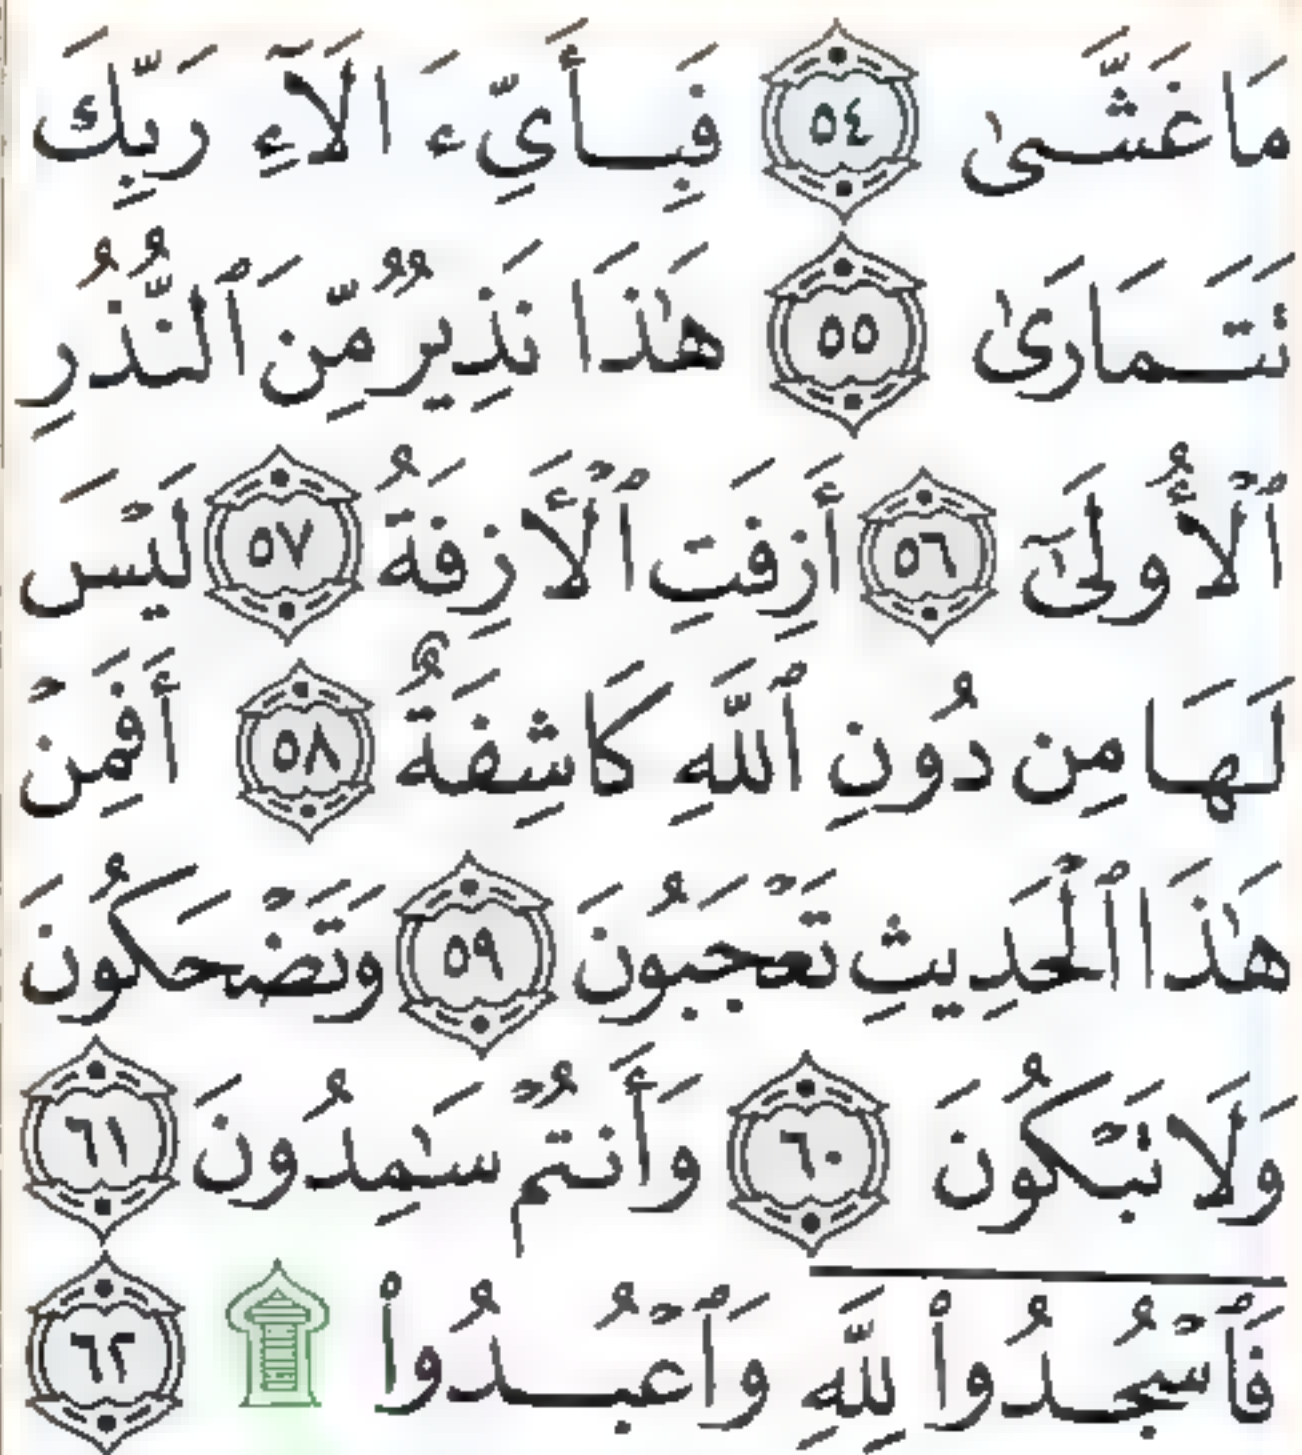 مَا غَشَّىٰ ٥٤ فَبِأَيِّ ءَالَآءِ رَبِّكَ
تَتَمَارَىٰ ٥٥ هَٰذَا نَذِيرٌ مِّنَ ٱلنُّذُرِ
ٱلْأُولَىٰٓ ٥٦ أَزِفَتِ ٱلْأَزِفَةُ ٥٧ لَيْسَ
لَهَا مِن دُونِ ٱللَّهِ كَاشِفَةٌ ٥٨ أَفَمِنْ
هَٰذَا ٱلْحَدِيثِ تَعْجَبُونَ ٥٩ وَتَضْحَكُونَ
وَلَا تَبْكُونَ ٦٠ وَأَنتُمْ سَٰمِدُونَ ٦١
فَٱسْجُدُوا۟ لِلَّهِ وَٱعْبُدُوا۟ ۩ ٦٢